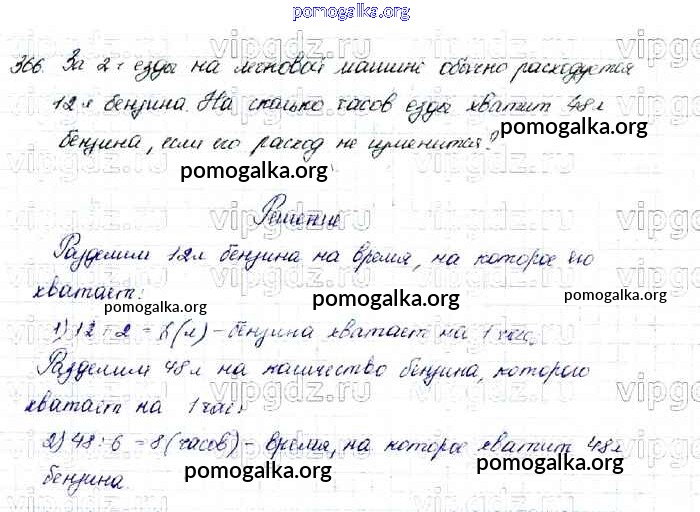 pomogalka.org
366. За 2 ч езды на легковой машине обычно расходуется
12 л бензина. На сколько часов езды хватит 48 л
pomogalka.org
бензина, если его расход не изменится?
pomogalka.org
Решение
Разделим 12 л бензина на время, на которое его
хватает:
pomogalka.org pomogalka.org pomogalka.org
1) 12 : 2 = 6 (л) - бензина хватает на 1 час,
Разделим 48 л на количество бензина, которого
хватает на 1 час:
2) 48 : 6 = 8 (часов) - время, на которое хватит 48 л
бензина.
pomogalka.org pomogalka.org
vipgdz.ru